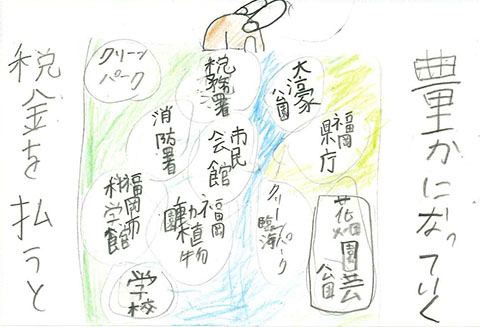 税金を払うと
豊かになっていく
クリーン
パーク
税務署
大濠
公園
消防署
市民
会館
福岡
県庁
福岡市
科学館
福岡
動植物
園
クリーンパーク
臨海
花畑園芸
公園
学校